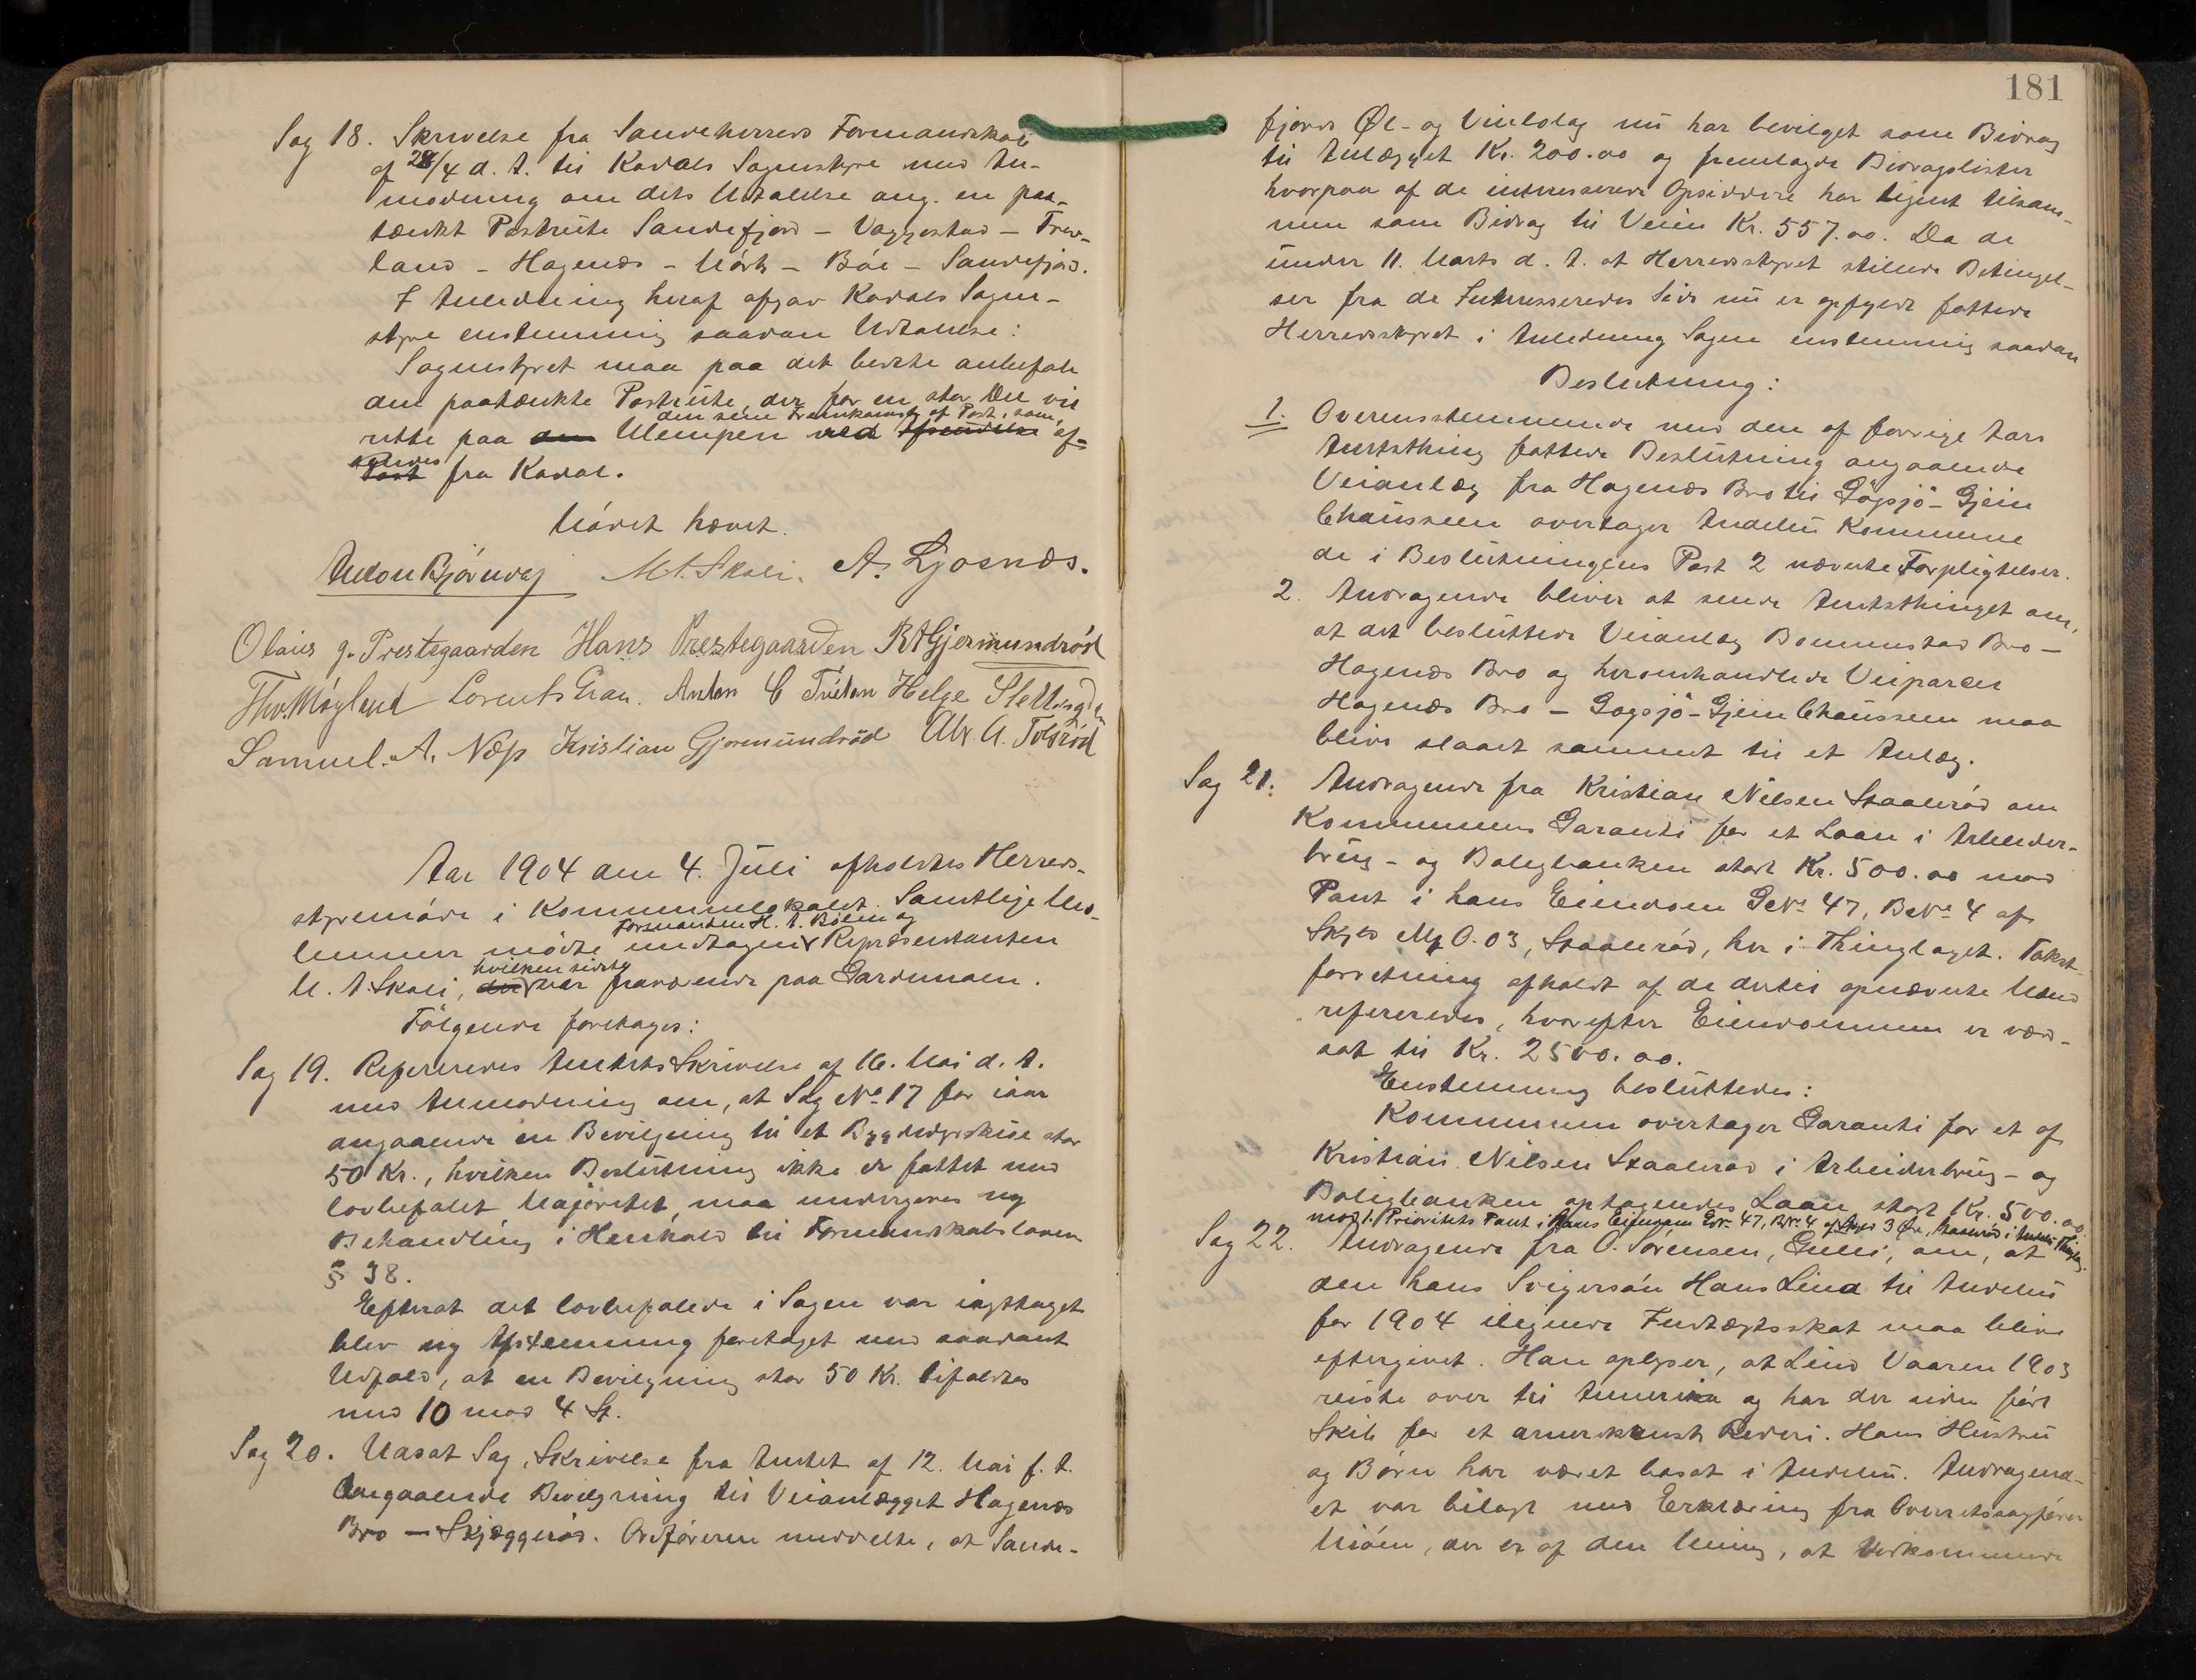 Sag 18. Skrivelse fra Sandeherreds Formandskab
af 28/4 d. A. til Kodals Sognestyre med An-
modning om dets Udtalelse ang. en paa-
tænkt Postrute Sandefjord – Vaggestad – Trev-
land – Hagenæs – Mörk – Böe – Sandefjord.
I Anledning heraf afgav Kodals Sogne-
styre enstemmig saadan Udtalelse:
Sognestyret maa paa det bedste anbefale
den paatænkte Postrute, der for en stor Del vil
den sene Fremkomst af Post, som
rette paa den Ulempen ved Afsendelse af-
sendes
Post fra Kodal.
Mödet hævet.
Anton Bjørndal M. A. Skoli. A. Ljosnæs.
Olaus J. Prestegaarden Hans Prestegaarden R A Gjermundröd
Thv. Möyland Lorents Gran. Anton C Trölan Helge Slettingda
Samuel. A. Næs Kristian Gjermundröd Abr. A. Tolsröd
Aar 1904 den 4. Juli afholdtes Herreds-
styremöde i Kommunelokalet. Samtlige Med-
Formanden H. A. Bölen og
lemmer mödte undtagen Repræsentanten
hvilken sidste
M. A. Skoli, der var fraværende paa Gardemoen.
Fölgende foretoges:
Sag 19. Refereredes Amtets Skrivelse af 16. Mai d. A.
med Anmodning om, at Sag No 17 for iaar
angaaende en Bevilgning til et Bygdedyrskue stor
50 Kr., hvilken Beslutning ikke er fattet med
lovbefalet Majoritet, maa undergives ny
Behandling i Henhold til Formandskabsloven
§ 38.
Efterat det lovbefalede i Sagen var iagttaget
blev ny Afstemning foretaget med saadant
Udfald, at en Bevilgning stor 50 Kr. bifaldtes
med 10 mod 4 St.
Sag 20. Udsat Sag, Skrivelse fra Amtet af 12. Mai f. A.
Angaaende Bevilgning til Veianlægget Hagenæs
Bro – Skjæggeröd. Ordföreren meddelte, at Sande-
181
fjords Øl- og Vinlolag nu har bevilget som Bidrag
til Anlægget Kr. 200.00 og fremlagde Bidragslister
hvorpaa af de interesserede Opsiddere har tegnet tilsam-
men som Bidrag til Veien Kr. 557.00. Da de
under 11. Marts d. A. at Herredsstyret stillede Betingel-
ser fra de Interesseredes Side nu er opfyldt fattede
Herredsstyret i Anledning Sagen enstemmig saadan
Beslutning:
1. Overensstemmende med den af forrige Aars
Amtsthing fattede Beslutning angaaende
Veianlæg fra Hagenæs Bro til Gogsjö–Gjein
Chausseen overtager Andebu Kommune
de i Beslutningens Post 2 nævnte Forpligtelser.
2. Andragende bliver at sende Amtsthinget om,
at det besluttede Veianlæg Bommestad Bro –
Hagenæs Bro og heromhandlede Veiparcel
Hagenæs Bro – Gogsjö–Gjein Chausseen maa
blive slaaet sammen til et Anlæg.
Sag 21. Andragende fra Kristian Nilsen Staaleröd om
Kommunens Garanti for et Laan i Arbeider-
brug- og Boligbanken stort Kr. 500.00 mod
Pant i hans Eiendom GNo 47, BNo 4 af
Skyld Mk 0.03, Staaleröd, her i Thinglaget. Takst-
forretning afholdt af de dertil opnævnte Mænd
refereredes, hvorefter Eiendommen er værd-
sat til Kr. 2500.00.
Enstemmig besluttedes:
Kommunen overtager Garanti for et af
Kristian Nilsen Staaleröd i Arbeiderbrug- og
Boligbanken optagendes Laan stort Kr. 500.00
mod 1. Prioritets Pant i hans Eiendom GNo 47, BNo 4 af Skyld 3 Øre, Staaleröd i Andebu Thinglag.
Sag 22. Andragende fra O. Sörensen, Gulli, om, at
den hans Svigersön Hans Lind til Andebu
for 1904 ilignede Indtægtsskat maa blive
eftergivet. Han oplyser, at Lind Vaaren 1903
reiste over til Amerika og har der siden fört
Skib for et amerikansk Rederi. Hans Hustru
og Börn har været bosat i Andebu. Andragend-
et var bilagt med Erklæring fra Overretssagförer
Mióen, der er af den Mening, at Vedkommende